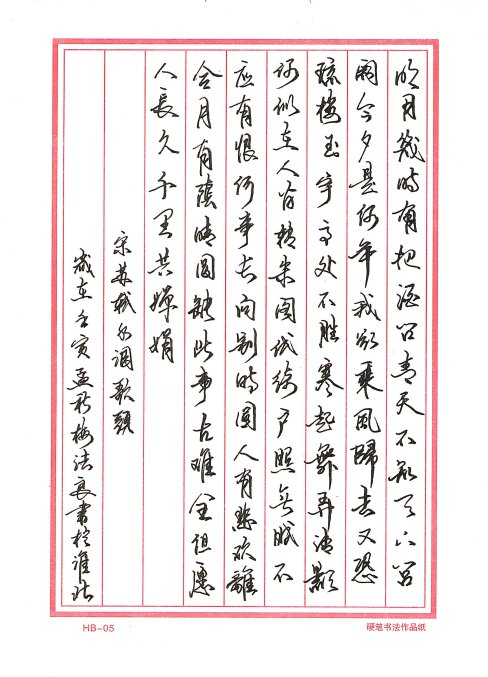 明月幾時有把酒问青天不知天上宫
闕今夕是何年我欲乘風歸去又恐
瓊樓玉宇高处不胜寒起舞弄清影
何似在人间转朱阁低绮户照無眠不
应有恨何事长向别时圆人有悲欢離
合月有陰晴圆缺此事古难全但愿
人長久千里共嬋娟
宋苏轼水调歌頭
歲在壬寅孟秋梅法良書於淮北
HB-05
硬笔书法作品纸